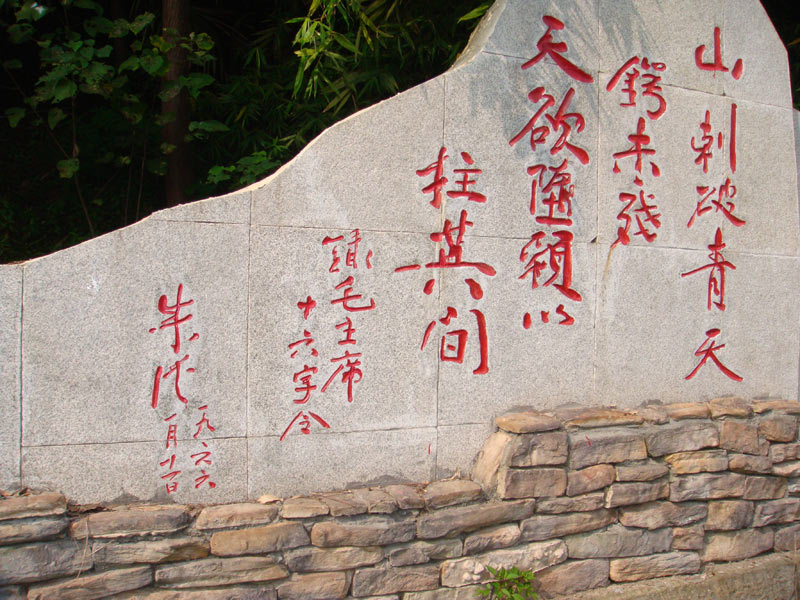 山刺破青天
鍔未残
天欲墮賴以
柱其间
錄毛主席
十六字令
朱德
一九六六
一月十